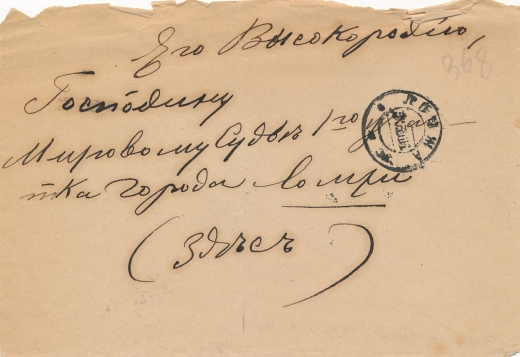 Его Высокородію,
368
Господину
Мировому Судьѣ 1го участ-
тка города Ломжи
(Здѣсь)
ЛОМЖА